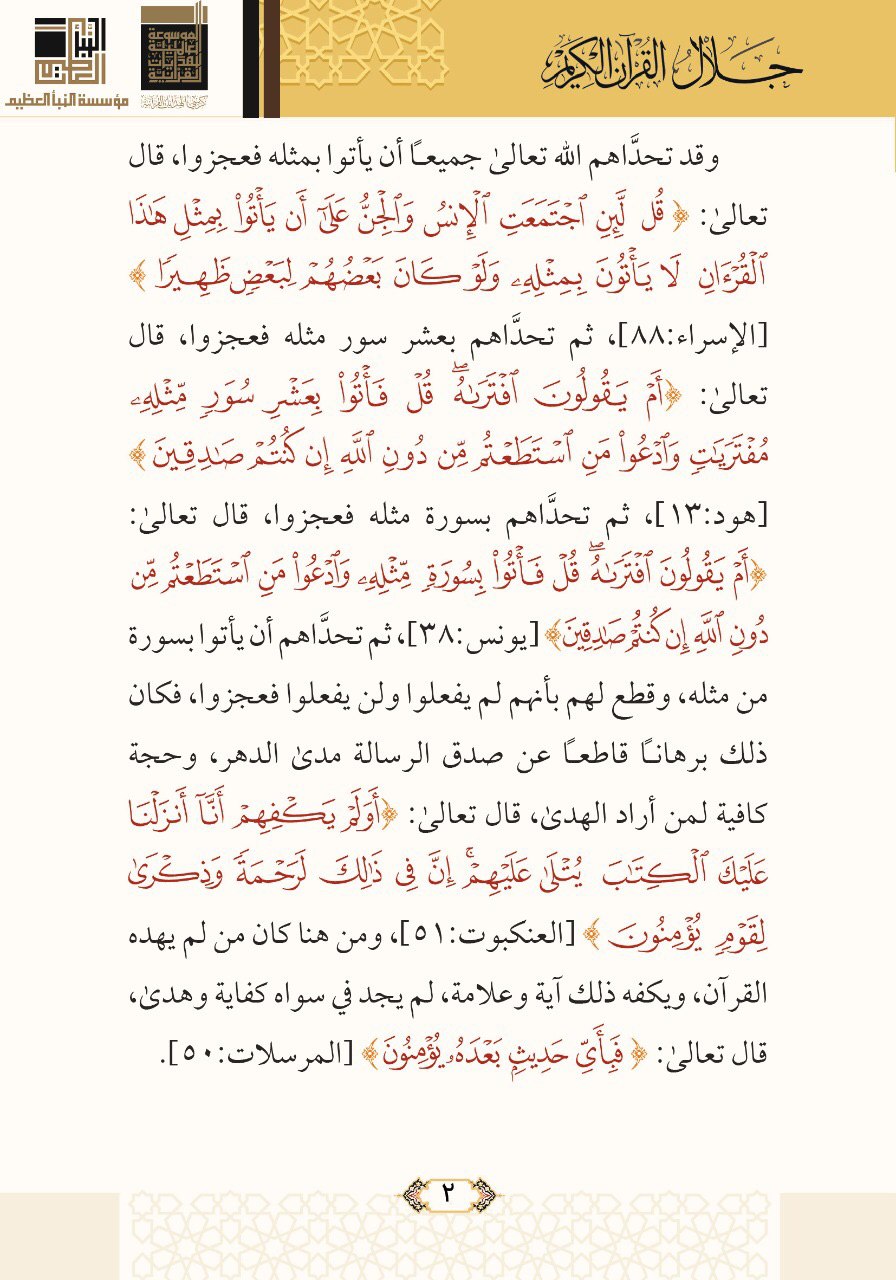 جلال القرآن الكريم
النبأ العظيم
مؤسسة النبأ العظيم
وقد تحدَّاهم الله تعالىٰ جميعـًا أن يأتوا بمثله فعجزوا، قال
تعالىٰ: ﴿ قُل لَّئِنِ ٱجۡتَمَعَتِ ٱلۡإِنسُ وَٱلۡجِنُّ عَلَىٰٓ أَن يَأۡتُواْ بِمِثۡلِ هَٰذَا
ٱلۡقُرۡءَانِ لَا يَأۡتُونَ بِمِثۡلِهِۦ وَلَوۡ كَانَ بَعۡضُهُمۡ لِبَعۡضٖ ظَهِيرٗا ﴾
[الإسراء:٨٨]، ثم تحدَّاهم بعشر سور مثله فعجزوا، قال
تعالىٰ: ﴿أَمۡ يَقُولُونَ ٱفۡتَرَىٰهُۖ قُلۡ فَأۡتُواْ بِعَشۡرِ سُوَرٖ مِّثۡلِهِۦ
مُفۡتَرَيَٰتٖ وَٱدۡعُواْ مَنِ ٱسۡتَطَعۡتُم مِّن دُونِ ٱللَّهِ إِن كُنتُمۡ صَٰدِقِينَ ﴾
[هود:١٣]، ثم تحدَّاهم بسورة مثله فعجزوا، قال تعالىٰ:
﴿أَمۡ يَقُولُونَ ٱفۡتَرَىٰهُۖ قُلۡ فَأۡتُواْ بِسُورَةٖ مِّثۡلِهِۦ وَٱدۡعُواْ مَنِ ٱسۡتَطَعۡتُم مِّن
دُونِ ٱللَّهِ إِن كُنتُمۡ صَٰدِقِينَ﴾ [يونس:٣٨]، ثم تحدَّاهم أن يأتوا بسورة
من مثله، وقطع لهم بأنهم لم يفعلوا ولن يفعلوا فعجزوا، فكان
ذلك برهانـًا قاطعـًا عن صدق الرسالة مدىٰ الدهر، وحجة
كافية لمن أراد الهدىٰ، قال تعالىٰ: ﴿أَوَلَمۡ يَكۡفِهِمۡ أَنَّآ أَنزَلۡنَا
عَلَيۡكَ ٱلۡكِتَٰبَ يُتۡلَىٰ عَلَيۡهِمۡۚ إِنَّ فِي ذَٰلِكَ لَرَحۡمَةٗ وَذِكۡرَىٰ
لِقَوۡمٖ يُؤۡمِنُونَ ﴾ [العنكبوت:٥١]، ومن هنا كان من لم يهده
القرآن، ويكفه ذلك آية وعلامة، لم يجد في سواه كفاية وهدىٰ،
قال تعالىٰ: ﴿ فَبِأَيِّ حَدِيثِۭ بَعۡدَهُۥ يُؤۡمِنُونَ﴾ [المرسلات:٥٠].
٢